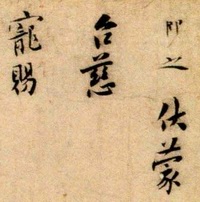 即之伏蒙
台慈
寵賜